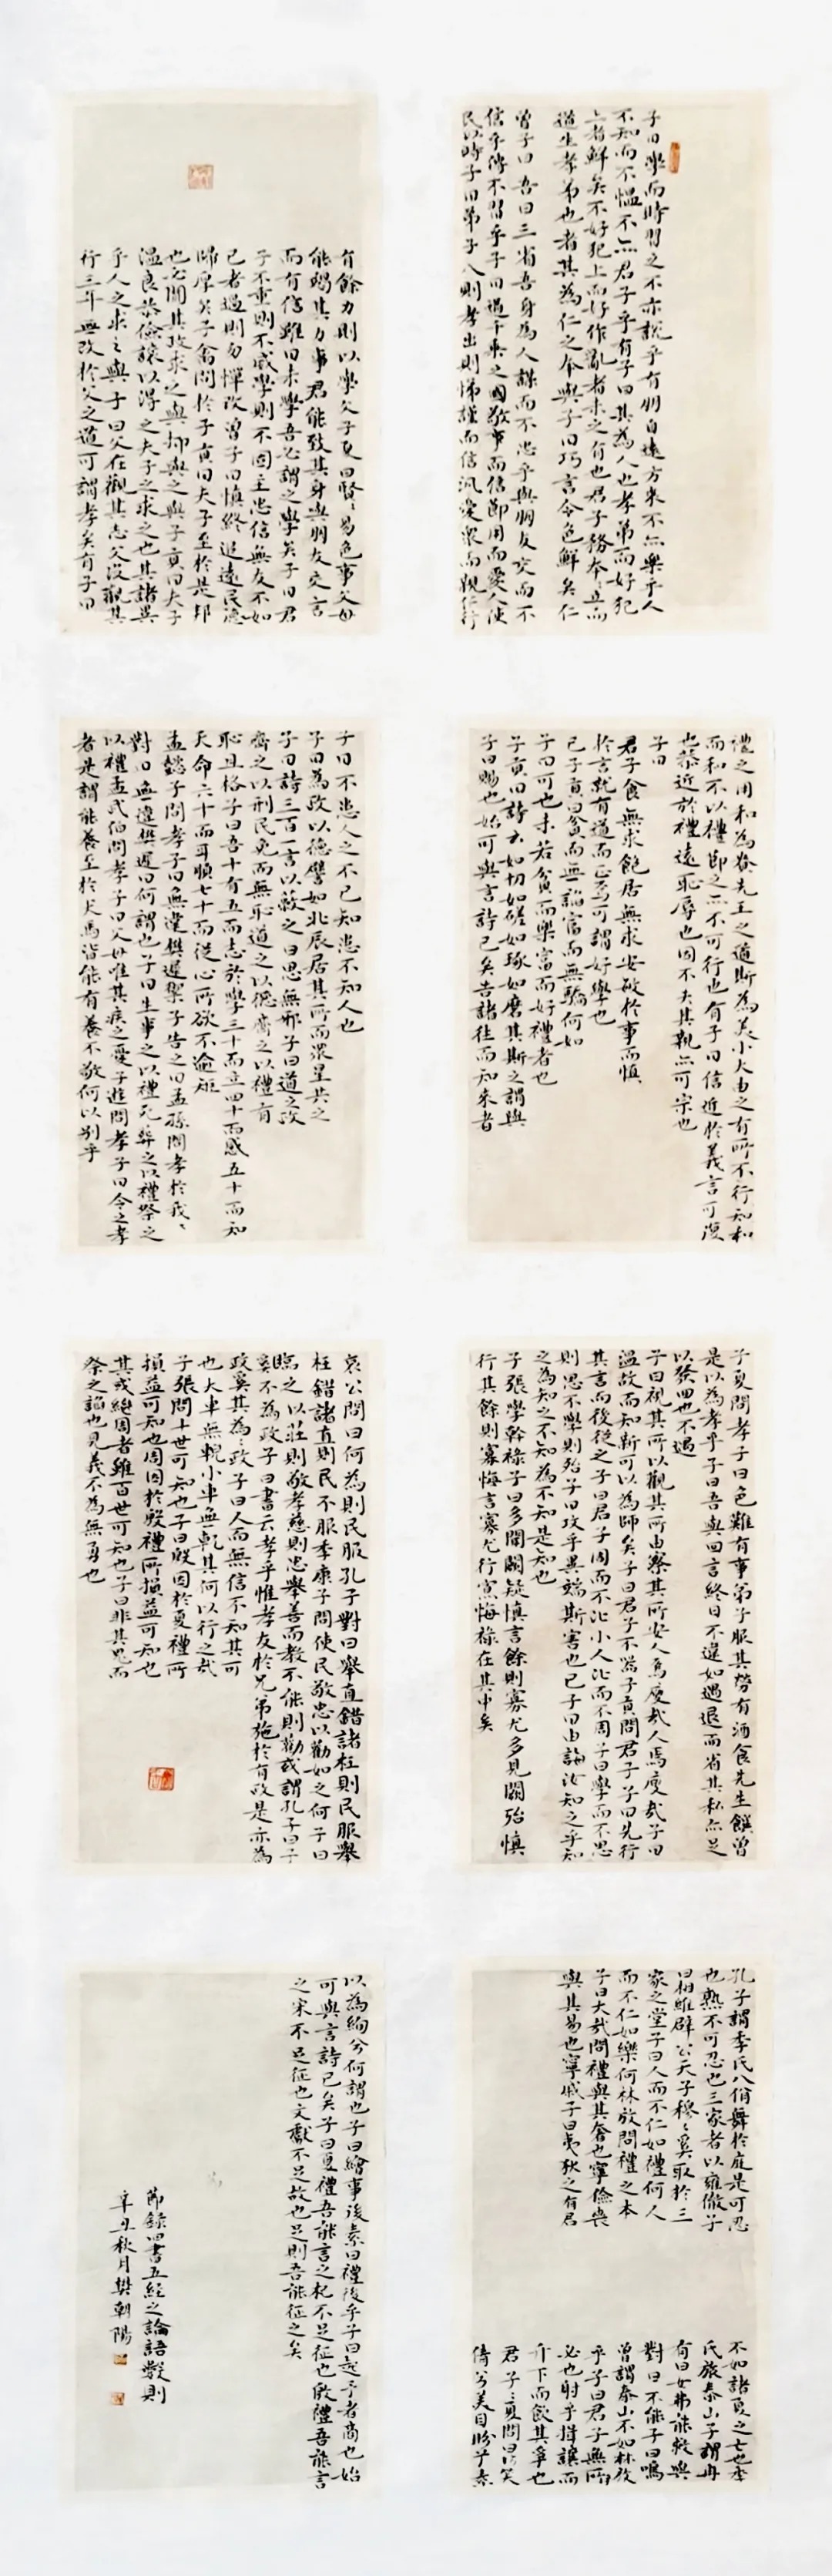 子曰學而時習之不亦說乎有朋自遠方來不亦樂乎人
不知而不慍不亦君子乎有子曰其為人也孝弟而好犯
上者鮮矣不好犯上而好作亂者未之有也君子務本本立而
道生孝弟也者其為仁之本與子曰巧言令色鮮矣仁
曾子曰吾日三省吾身為人謀而不忠乎與朋友交而不
信乎傳不習乎子曰道千乘之國敬事而信節用而愛人使
民以時子曰弟子入則孝出則悌謹而信汎愛眾而親仁行
有餘力則以學文子夏曰賢賢易色事父母
能竭其力事君能致其身與朋友交言
而有信雖曰未學吾必謂之學矣子曰君
子不重則不威學則不固主忠信無友不如
己者過則勿憚改曾子曰慎終追遠民德
歸厚矣子禽問於子貢曰夫子至於是邦
也必聞其政求之與抑與之與子貢曰夫子
溫良恭儉讓以得之夫子之求之也其諸異
乎人之求之與子曰父在觀其志父沒觀其
行三年無改於父之道可謂孝矣有子曰
禮之用和為貴先王之道斯為美小大由之有所不行知和
而和不以禮節之亦不可行也有子曰信近於義言可復
也恭近於禮遠恥辱也因不失其親亦可宗也
子曰
君子食無求飽居無求安敏於事而慎
於言就有道而正焉可謂好學也
已子貢曰貧而無諂富而無驕何如
子曰可也未若貧而樂富而好禮者也
子貢曰詩云如切如磋如琢如磨其斯之謂與
子曰賜也始可與言詩已矣告諸往而知來者
子曰不患人之不己知患不知人也
子曰為政以德譬如北辰居其所而眾星共之
子曰詩三百一言以蔽之曰思無邪子曰道之以政
齊之以刑民免而無恥道之以德齊之以禮有
恥且格子曰吾十有五而志於學三十而立四十而惑五十而知
天命六十而耳順七十而從心所欲不逾矩
孟懿子問孝子曰無違樊遲禦子告之曰孟孫問孝於我我
對曰無違樊遲曰何謂也子曰生事之以禮死葬之以禮祭之
以禮孟武伯問孝子曰父母唯其疾之憂子遊問孝子曰今之孝
者是謂能養至於犬馬皆能有養不敬何以別乎
子夏問孝子曰色難有事弟子服其勞有酒食先生饌曾
是以為孝乎子曰吾與回言終日不違如愚退而省其私亦足
以發回也不愚
子曰視其所以觀其所由察其所安人焉廋哉人焉廋哉子曰
溫故而知新可以為師矣子曰君子不器子貢問君子子曰先行
其言而後從之子曰君子周而不比小人比而不周子曰學而不思
則罔思不學則殆子曰攻乎異端斯害也已子曰由誨汝知之乎知
之為知之不知為不知是知也
子張學幹祿子曰多聞闕疑慎言餘則寡尤多見闕殆慎
行其餘則寡悔言寡尤行寡悔祿在其中矣
哀公問曰何為則民服孔子對曰舉直錯諸枉則民服舉
枉錯諸直則民不服季康子問使民敬忠以勸如之何子曰
臨之以莊則敬孝慈則忠舉善而教不能則勸或謂孔子曰子
奚不為政子曰書云孝乎惟孝友於兄弟施於有政是亦為
政奚其為為政子曰人而無信不知其可
也大車無輗小車無軏其何以行之哉
子張問十世可知也子曰殷因於夏禮所
損益可知也周因於殷禮所損益可知也
其或繼周者雖百世可知也子曰非其鬼而
祭之諂也見義不為無勇也
孔子謂季氏八佾舞於庭是可忍
也孰不可忍也三家者以雍徹子
曰相維辟公天子穆穆奚取於三
家之堂子曰人而不仁如禮何人
而不仁如樂何林放問禮之本
子曰大哉問禮與其奢也寧儉喪
與其易也寧戚子曰夷狄之有君
不如諸夏之亡也季
氏旅泰山子謂冉
有曰女弗能救與
對曰不能子曰嗚
曾謂泰山不如林放
乎子曰君子無所
必也射乎揖讓而
升下而飲其爭也
君子子夏問曰巧笑
倩兮美目盼兮素
以為絢兮何謂也子曰繪事後素曰禮後乎子曰起予者商也始
可與言詩已矣子曰夏禮吾能言之杞不足征也殷禮吾能言
之宋不足征也文獻不足故也足則吾能征之矣
節錄四書五經之論語數則
辛丑秋月樊朝陽